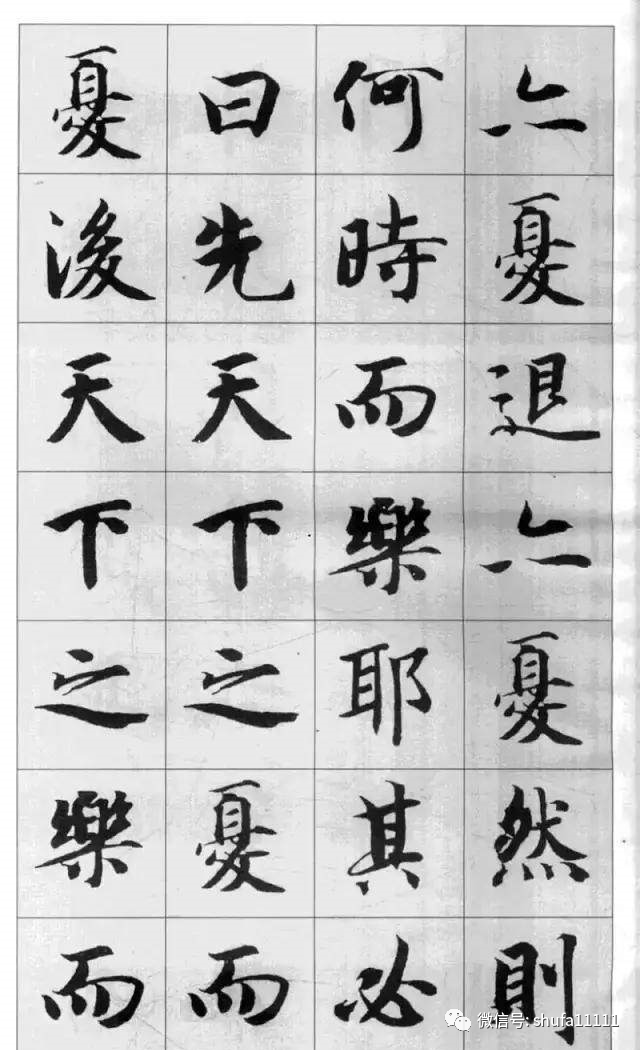 亦憂退亦憂然則
何時而樂耶其必
曰先天下之憂而
憂後天下之樂而
微信号: shufa11111